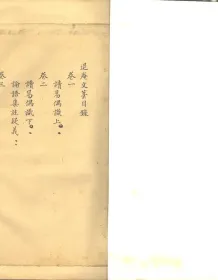 退庵文集目錄
卷一
讀易偶識上
卷二
讀易偶識下
論語集註疑義
卷三